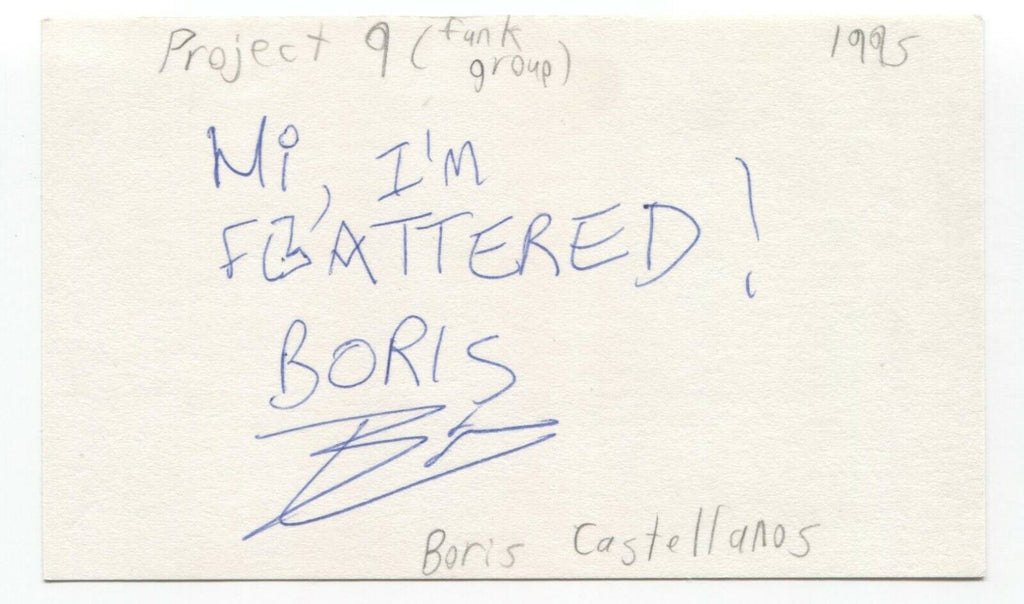 Project 9 (funk group)
1995
Hi, I'm
FLATTERED!
BORIS
Boris Castellanos